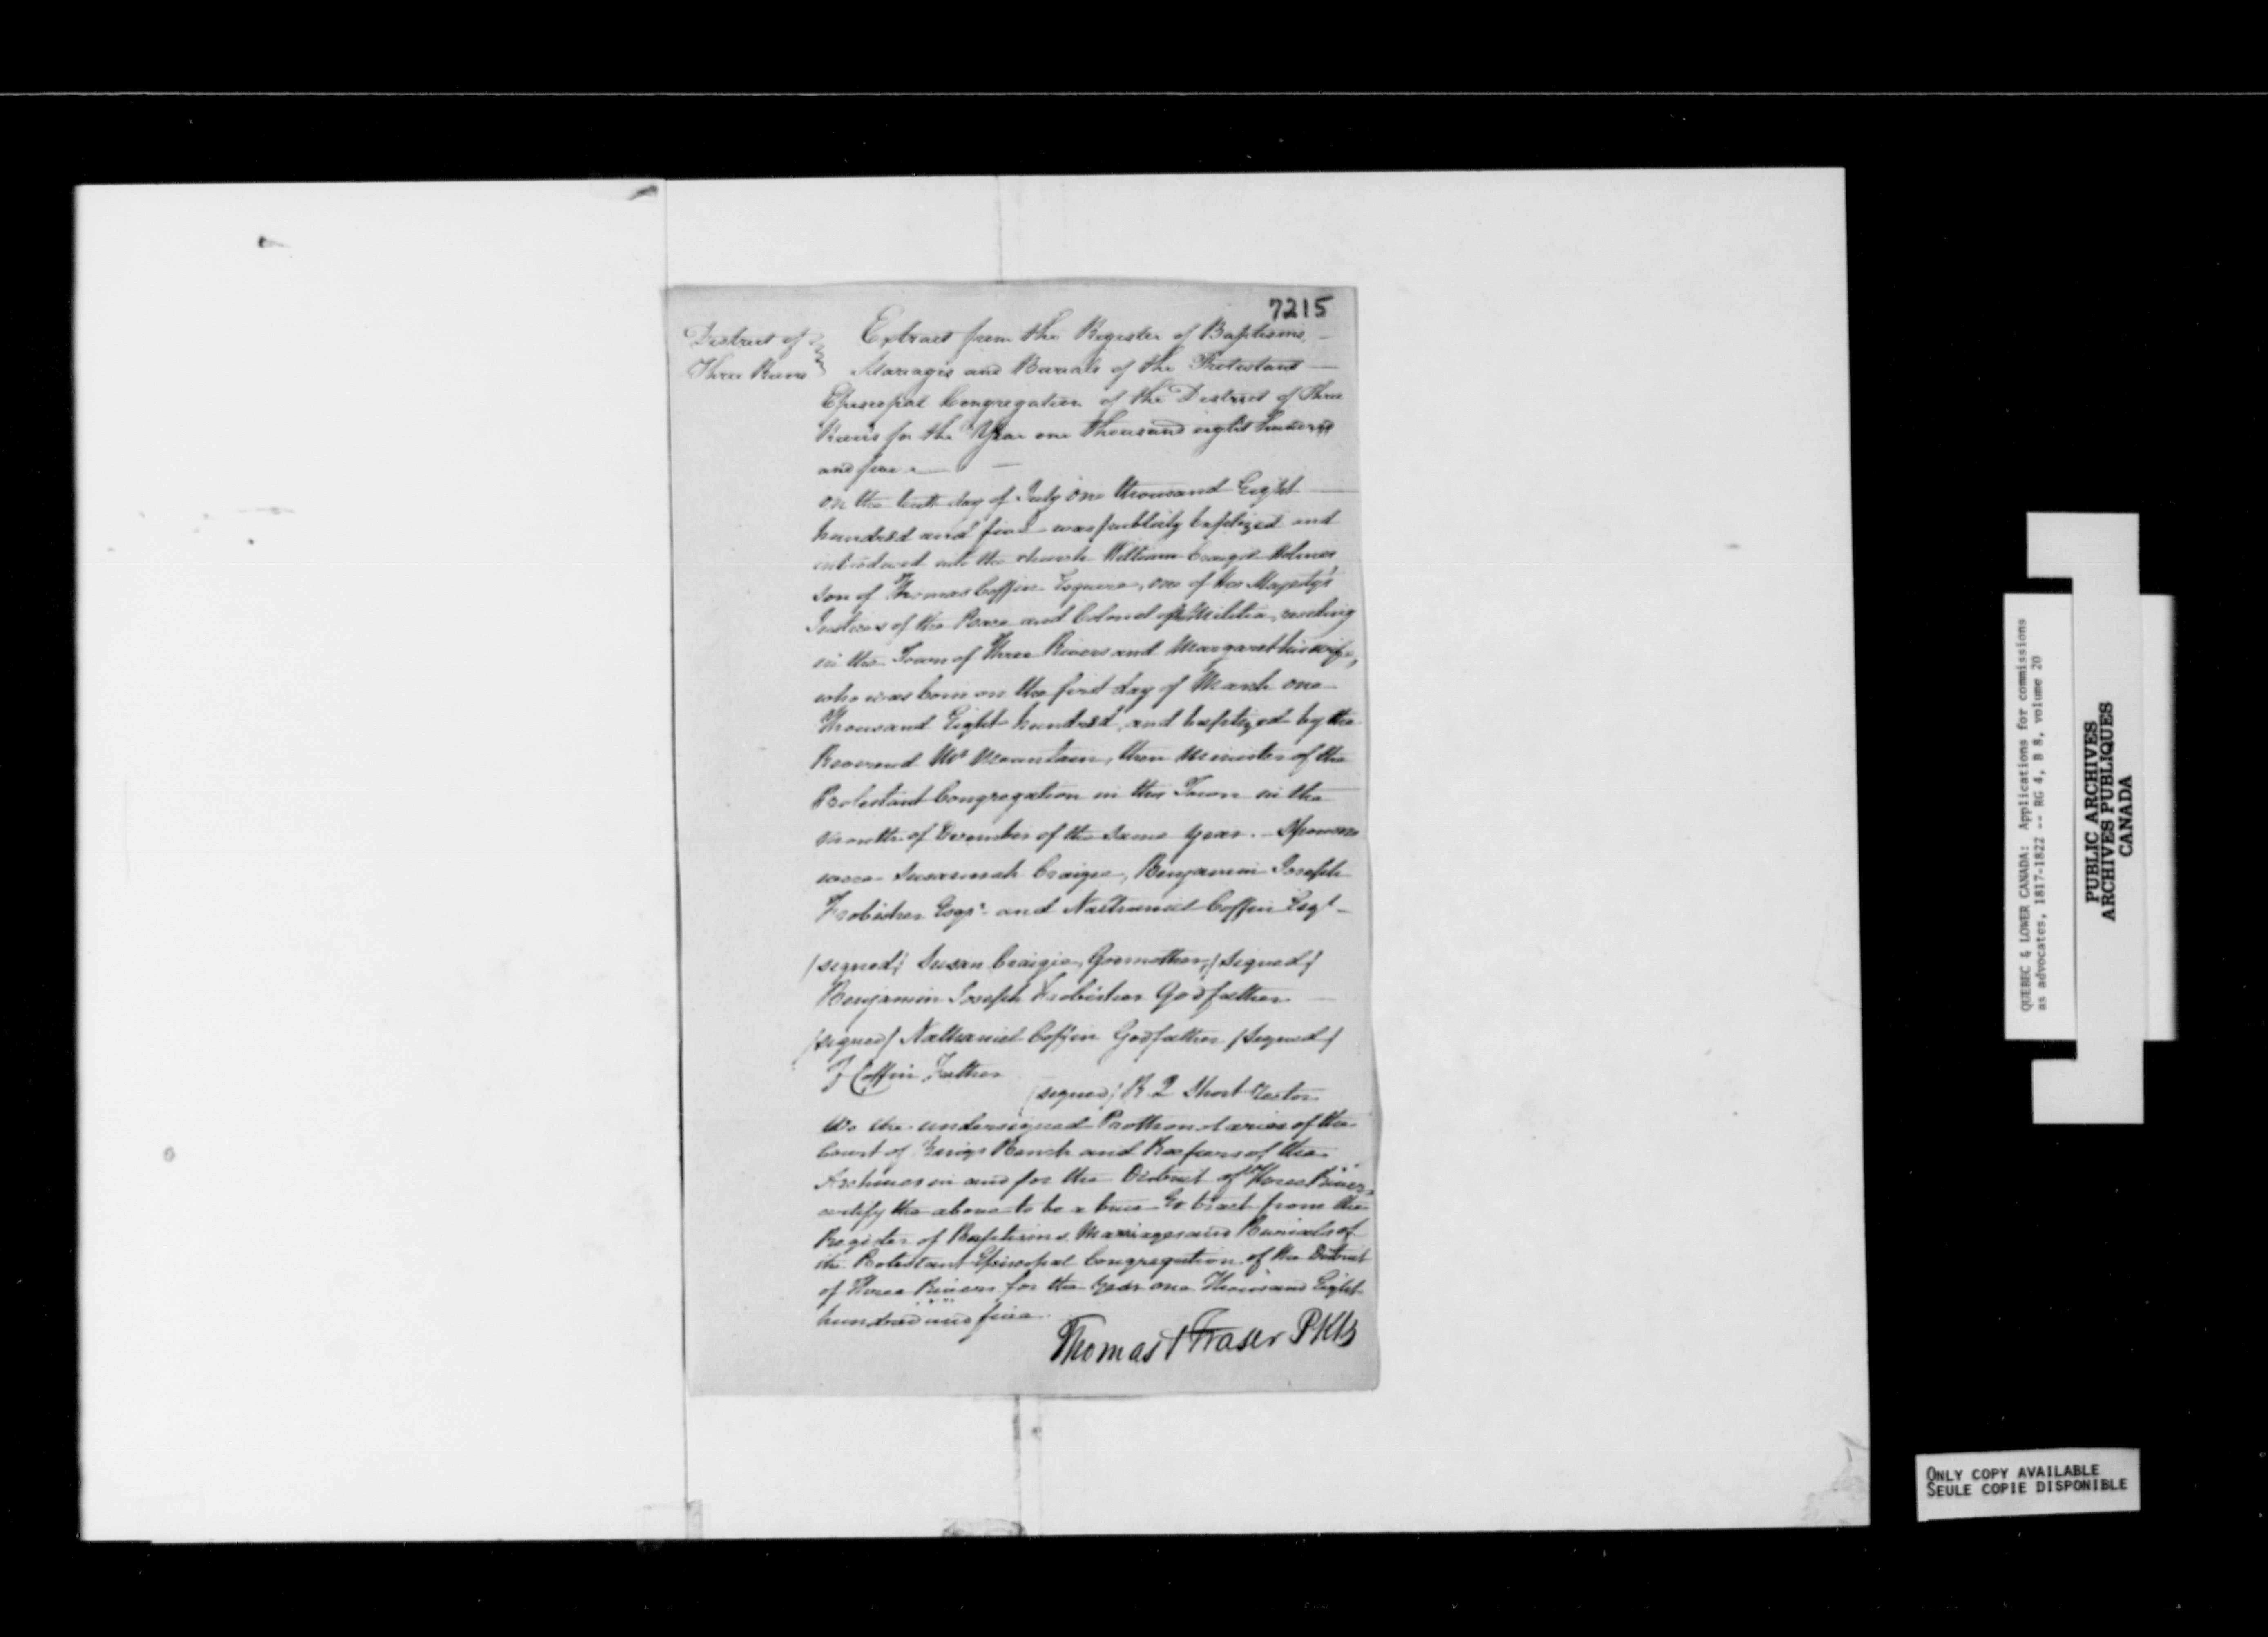 7215
District of
Three Rivers
Extract from the Register of Baptisms,
Mariages and Burials of the Protestant
Episcopal Congregation of the District of Three
Rivers for the Year one thousand eight hundred
and five
on the tenth day of July one thousand Eight
hundred and five was publicly baptized and
introduced into the church William Craigie Holmes
Son of Thomas Coffin Esquire, one of his Majesty's
Justices of the Peace and Colonel of Militia, residing
in the Town of Three Rivers and Margaret his wife,
who was born on the first day of March one
Thousand Eight hundred, and baptized by the
Reverend Mr Mountain, then Minister of the
Protestant Congregation in this Town in the
month of December of the same year. Sponsors
were Susannah Craigie, Benjamin Joseph
Frobisher Esqr. and Nathaniel Coffin Esqr
/signed/ Susan Craigie, Godmother, /Signed/
Benjamin Joseph Frobisher Godfather
/signed/ Nathaniel Coffin Godfather /Signed/
T Coffin Father
/signed/ R Q Short Rector
We the undersigned Prothonotaries of the
Court of Kings Bench and Keepers of the
Archives in and for the District of Three Rivers,
certify the above to be a true Extract from the
Register of Baptisms Marriages and Burials of
the Protestant Episcopal Congregation of the District
of Three Rivers for the Year one Thousand Eight
hundred and five.
Thomas Fraser PKB
QUEBEC & LOWER CANADA: Applications for commissions
as advocates, 1817-1822 -- RG 4, B 8, volume 20
PUBLIC ARCHIVES
ARCHIVES PUBLIQUES
CANADA
ONLY COPY AVAILABLE
SEULE COPIE DISPONIBLE